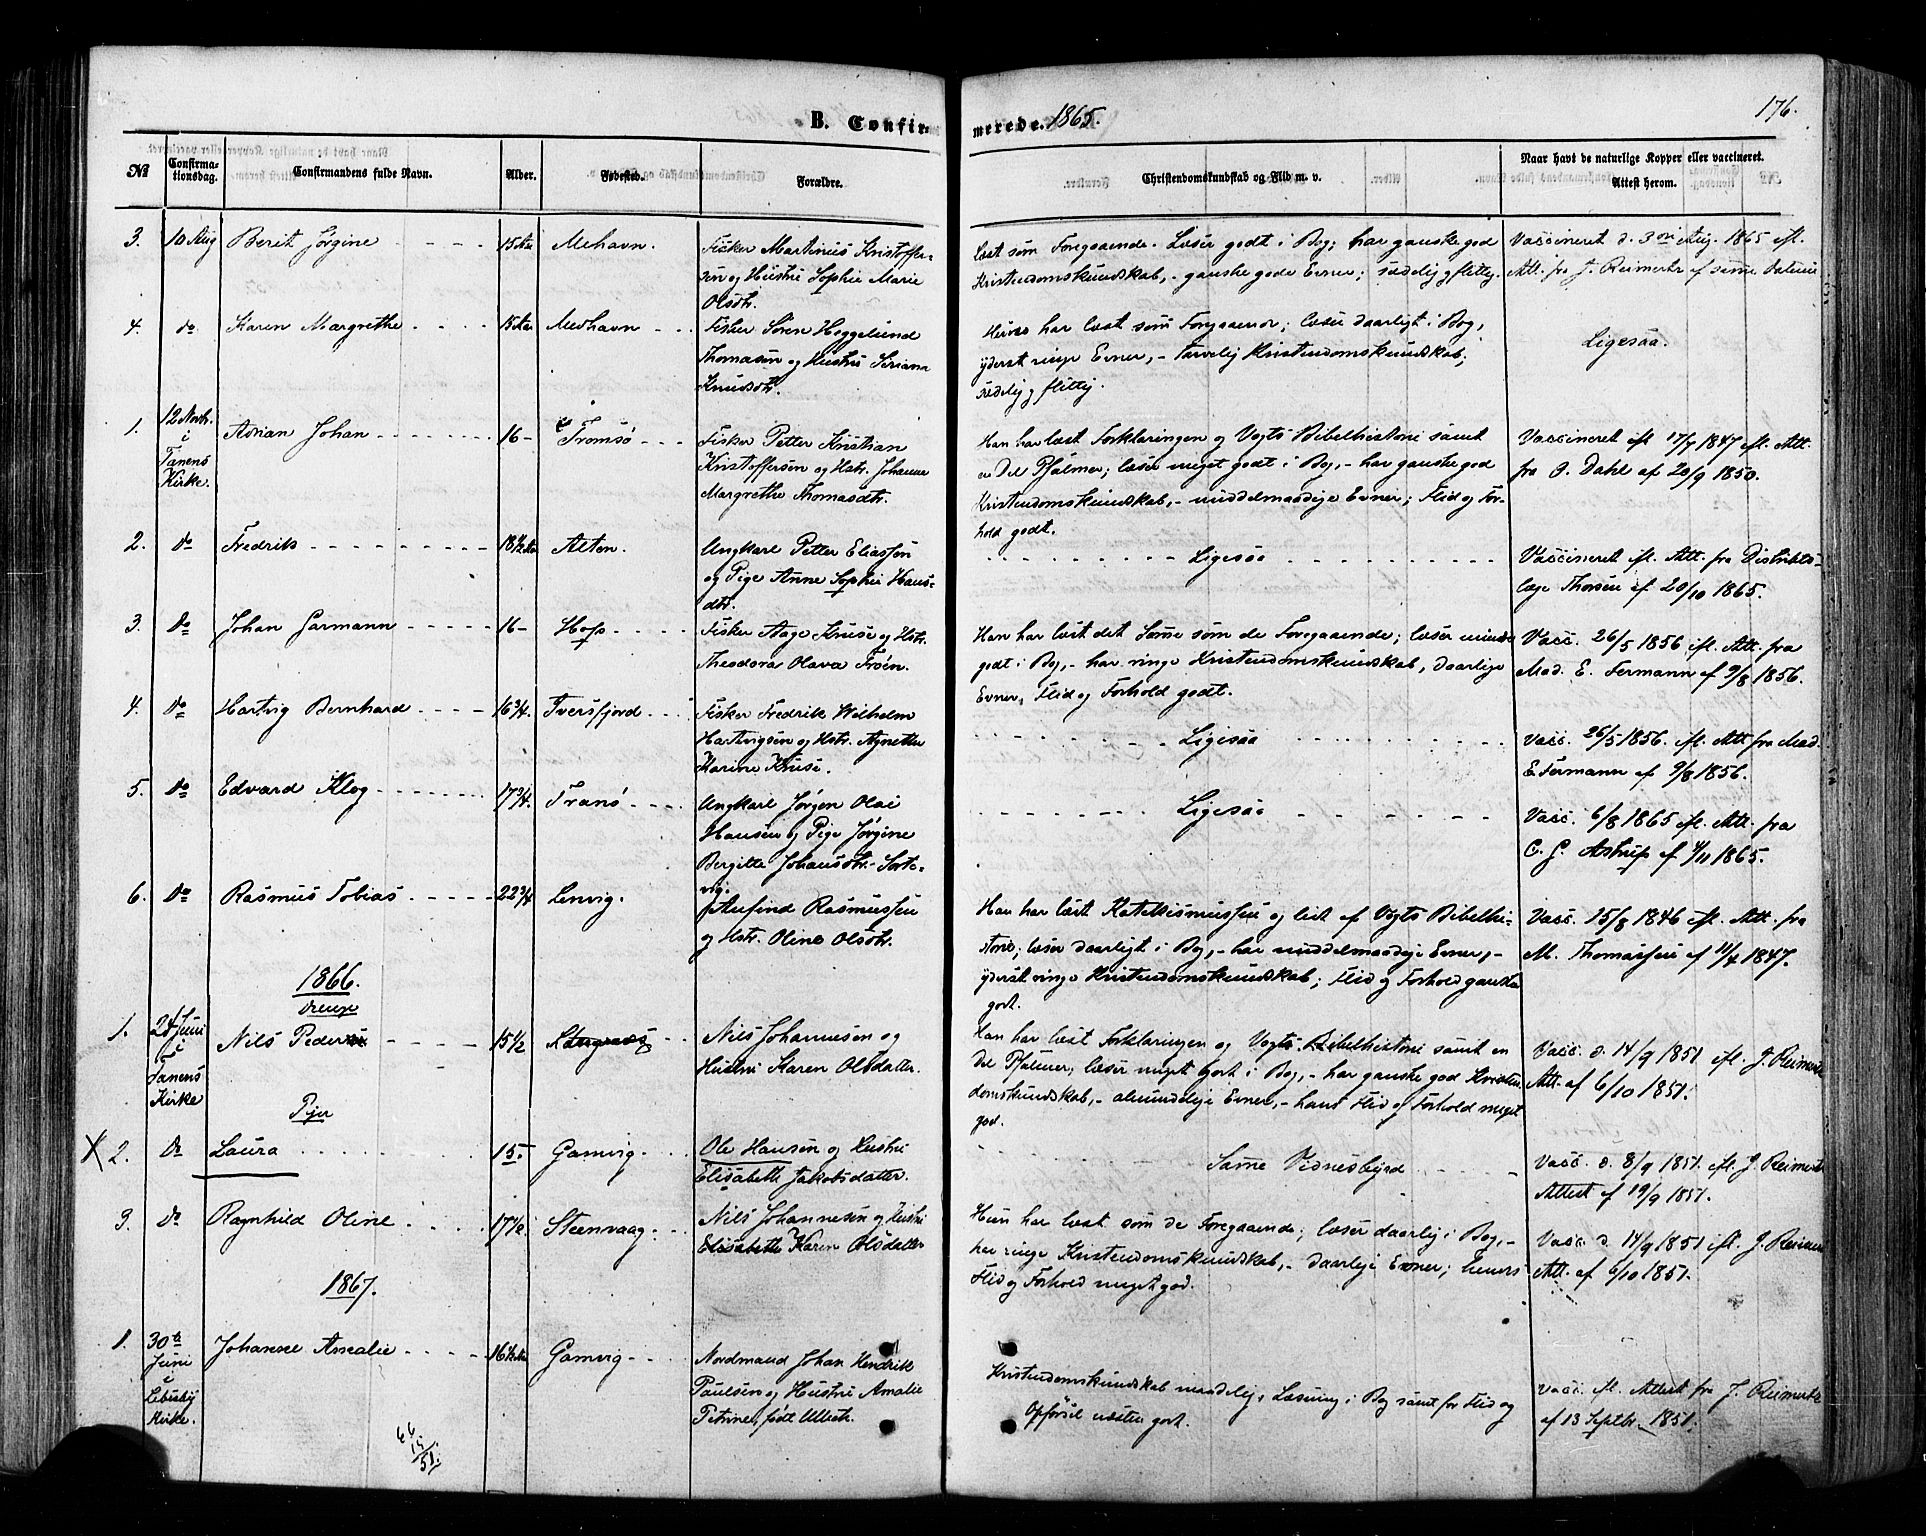 176.
B. Confirmerede. 1865.
No
Confirmationsdag.
Confirmandens fulde Navn.
Alder.
Fødested.
Forældre.
Christendomskundskab og Flid m. v.
Naar havt de naturlige Kopper eller vaccineret.
Attest herom.
3. 10 Aug Berit Jørgine 15 Aar Mehavn.
Fisker Martinus Kristoffer-
sen og Hustru Sophie Marie
Olsdtr.
læst som Foregaaende. Læser godt i Bog; har ganske god
Kristendomskundskab, - ganske gode Evner; sædelig og flittig.
Vaccineret d. 3die Aug. 1865 efl.
Att. fra J. Reimerts af samme Datum
4. do Karen Margrethe 15 Aar Mehavn
Fisker Sören Heggelund
Thomasen og Hustru Seriana
Knudsdtr.
har læst som Foregaaende; læser daarligt i Bog,
yderst ringe Evner, - tarvelig Kristendomskundskab,
sædelig og flittig.
Ligesaa.
1. 12 Novbr.
i
Tanens
Kirke.
Adrian Johan 16 - Tromsø
Fisker Petter Kristian
Kristoffersen og Hstr. Johanna
Margrethe Thomasdtr.
Han har læst Forklaringen og Vogts Bibelhistorie samt
en Del Psalmer; læser meget godt i Bog, - har ganske god
Kristendomskundskab, - middelmaadige Evner; Flid og For-
hold godt.
Vaccineret efl. 17/7 1847 efl. Att.
fra O. Dahl af 20/9 1850.
2. do Fredrik 18 1/2 Aar Alten.
Ungkarl Petter Eliassen
og Pige Anne Sophie Hans-
dtr.
Ligesaa
Vaccineret efl. Att. fra Distrikts-
læge Thorsen af 20/10 1865.
3. do Johan Garmann 16 - Hops
Fisker Aage Kruse og Hstr.
Theodora Olava Frøen.
Han har læst det Samme som de Foregaaende; læser mindre
godt i Bog, - har ringe Kristendomskundskab, daarlige
Evner, Flid og Forhold godt.
Vacc. 26/5 1856 efl. Att. fra
Mad. E. Fermann af 9/8 1856.
4. do Hartvig Bernhard 16 3/4 Tversfjord
Fisker Fredrik Wilhelm
Hartvigsen og Hstr. Agnetta
Karine Kruse.
Ligesaa
Vacc. 26/5 1856. efl. Att fra Mad.
E. Fermann af 9/8 1856.
5. do Edvard Klog 17 3/4 Tranø
Ungkarl Jørgen Olai
Hansen og Pige Jørgine
Bergitte Johansdtr. Sorte-
vig.
Ligesaa
Vacc. 6/8 1865 efl. Att. fra
C. G. Astrup af 4/11 1865.
6. do Rasmus Tobias 22 3/4 Lenvig.
Arnfind Rasmussen
og Hstr. Oline Olsdtr.
Han har læst Katekismussen og lidt af Vogts Bibelhi-
storie; læser daarligt i Bog, - har middelmaadige Evner, -
yderst ringe Kristendomskundskab; Flid og Forhold ganske
godt.
Vacc. 15/8 1846 efl. Att. fra
M. Thomassen af 11/4 1847.
1866.
Drenge
1. 24 Juni
i
Tanens
Kirke
Nils Peder 15 1/2
Nils Johannesen og
Hustru Karen Olsdatter.
Han har læst Forklaringen og Vogts Bibelhistorie samt en
Del Psalmer, læser meget godt i Bog, - har ganske god Kristen-
domskundskab, - almindelige Evner, - hans Flid og Forhold meget
god.
Vacc. d. 14/9 1851 efl. J. Reimerts
Att. af 6/10 1851.
Piger
X 2. do Laura 15. Gamvig
Ole Hansen og Hustru
Elisabeth Jakobsdatter.
Samme Vidnesbyrd
Vacc. d. 8/9 1851. efl. J. Reimerts
Attest af 19/9 1851.
3. do Ragnhild Oline 17 1/2 Steenvaag
Nils Johannesen og Hustru
Elisabeth Karen Olsdatter
Hun har læst som de Foregaaende; læser daarlig i Bog, -
har ringe Kristendomskundskab, - daarlige Evner; hendes
Flid og Forhold meget god.
Vacc. d. 14/9 1851 efl. J. Reimerts
Att. af 6/10 1851.
1867.
1. 30te
Juni
i
Lebesby
Kirke.
Johanne Amalie 16 1/2 Aar Gamvig
Nordmand Johan Hendrik
Paulsen og Hustru Amalie
Petrine, født Ulich.
Kristendomskundskab maadelig; Læsning i Bog samt for Flid og
Opførsel næsten godt.
Vacc. efl. Attest fra J. Reimerts
af 13 Septbr. 1851.
66
15
51.